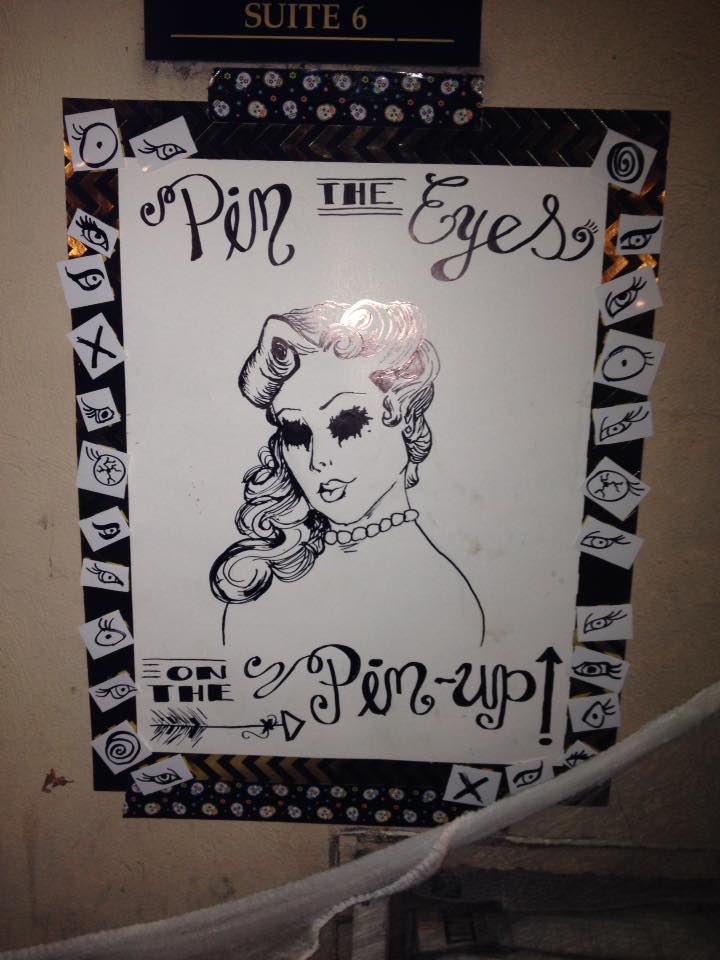 SUITE 6
Pin THE Eyes
ON THE Pin-up!